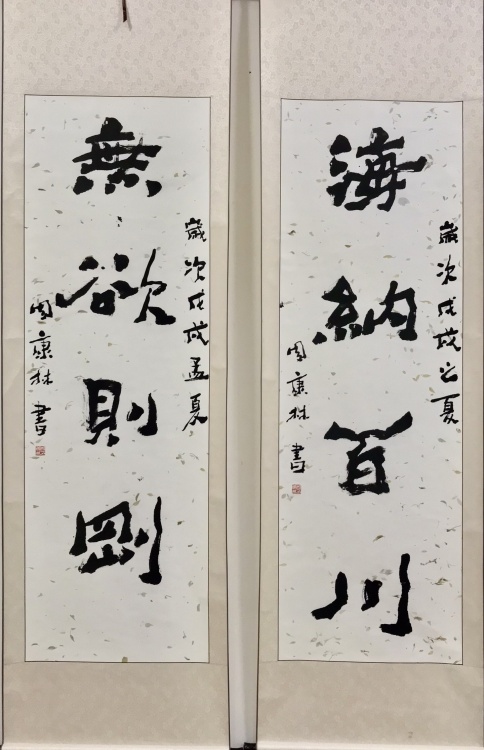 海納百川
歲次戊戌之夏
周康林書
無欲則剛
歲次戊戌孟夏
周康林書